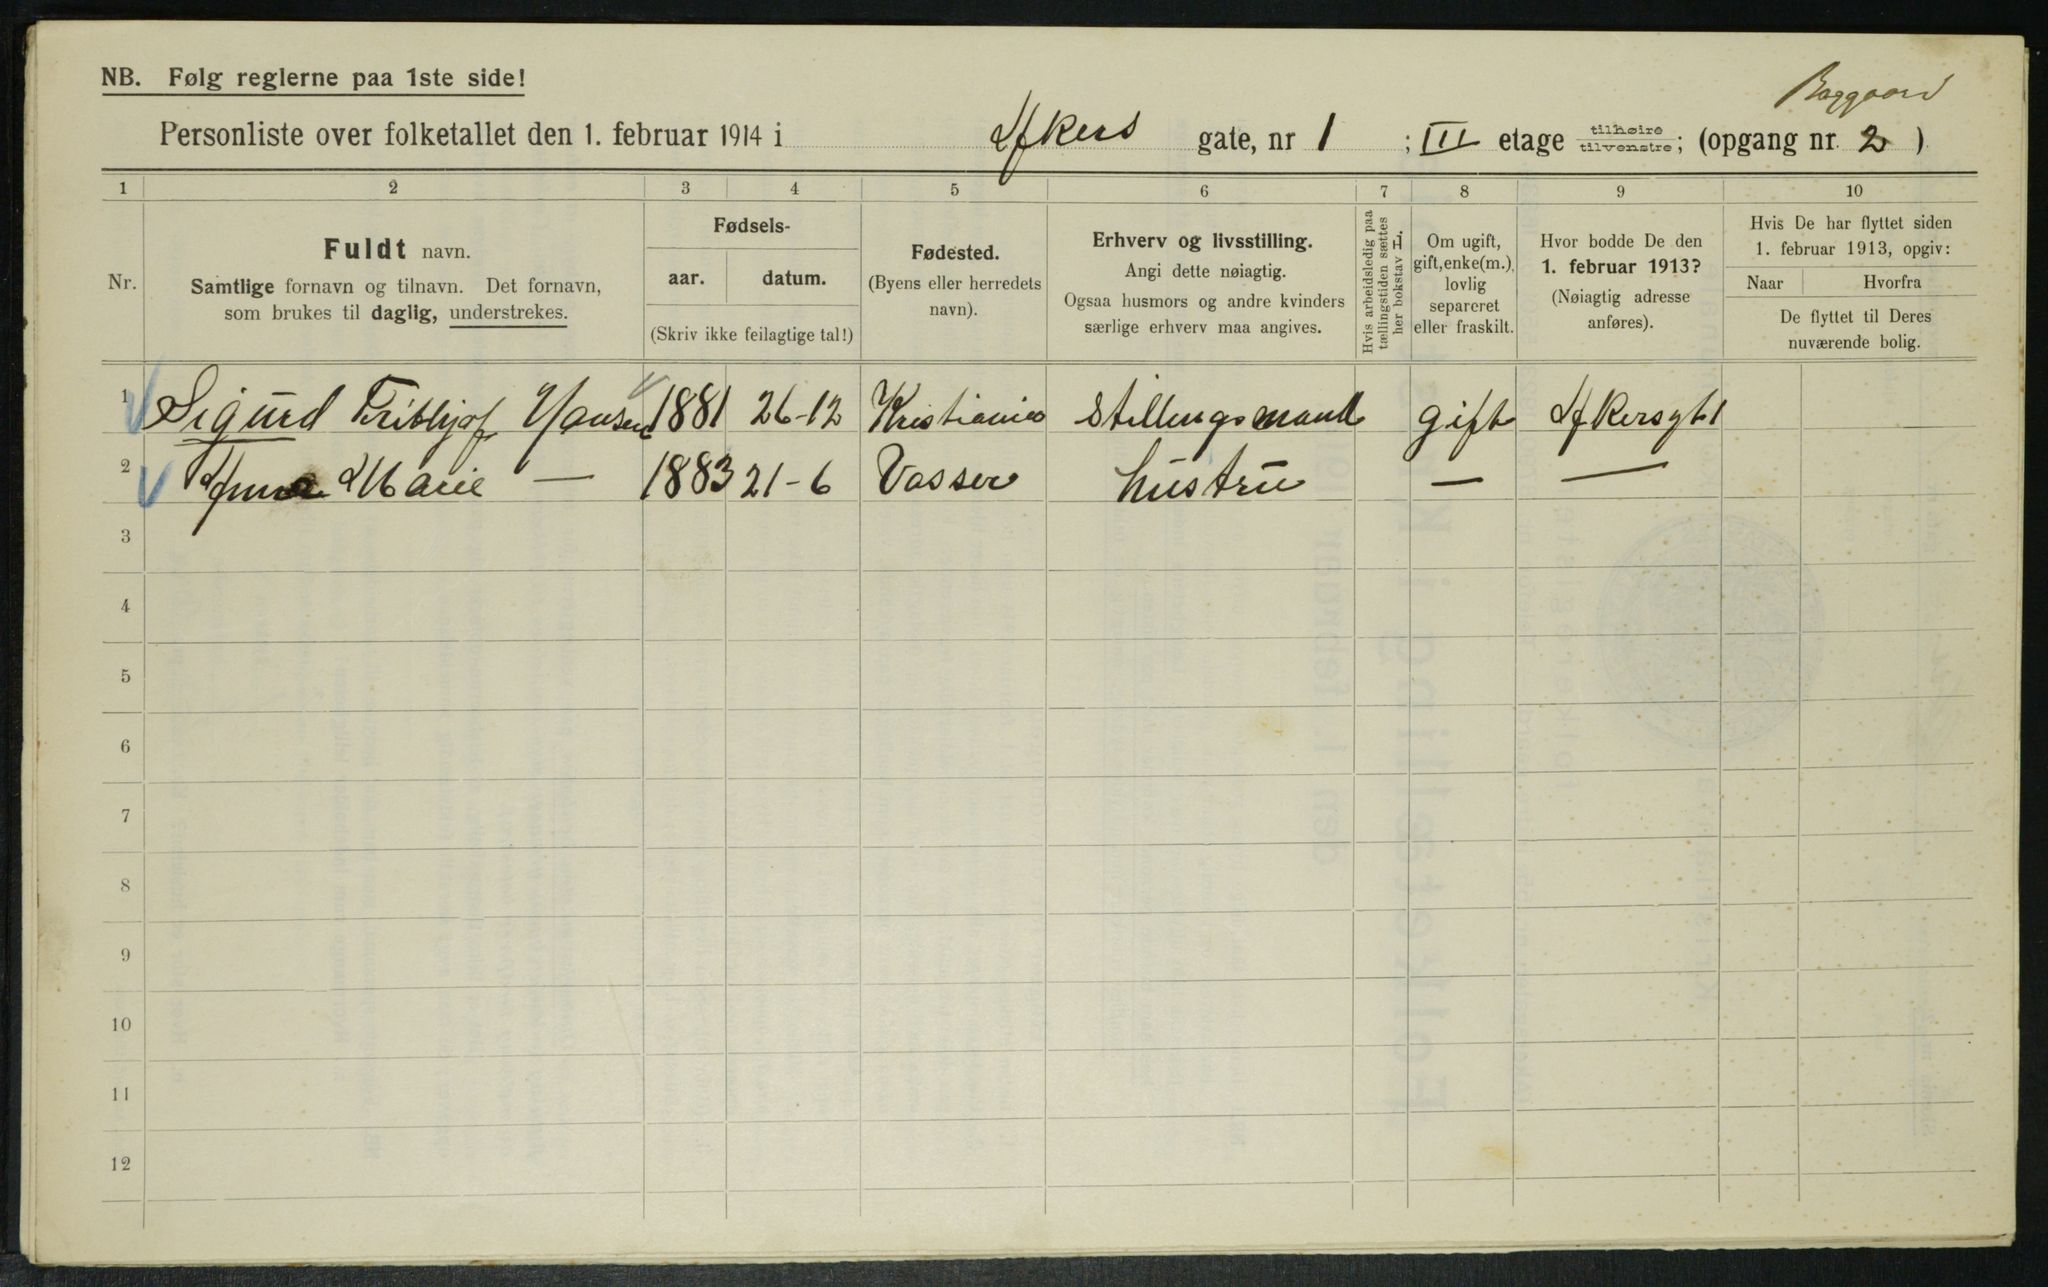 NB. Følg reglerne paa 1ste side!
Baggaard
Personliste over folketallet den 1. februar 1914 i Akers gate, nr 1 ; III etage tilhøire tilvenstre; (opgang nr. 2 )
1 2 3 4 5 6 7 8 9 10
Nr.
Fuldt navn.
Samtlige fornavn og tilnavn. Det fornavn,
som brukes til daglig, understrekes.
Fødsels-
aar. datum.
(Skriv ikke feilagtige tal!)
Fødested.
(Byens eller herredets
navn).
Erhverv og livsstilling.
Angi dette nøiagtig.
Ogsaa husmors og andre kvinders
særlige erhverv maa angives.
Hvis arbeidsledig paa
tællingstiden sættes
her bokstav L.
Om ugift,
gift, enke(m.),
lovlig
separeret
eller fraskilt.
Hvor bodde De den
1. februar 1913?
(Nøiagtig adresse
anføres).
Hvis De har flyttet siden
1. februar 1913, opgiv:
Naar Hvorfra
De flyttet til Deres
nuværende bolig.
1 Sigurd Frithjof Hansen 1881 26-12 Kristiania Stillingsmand gift Akersgt 1
2 Anna Marie — 1883 21-6 Vasser hustru — —
3
4
5
6
7
8
9
10
11
12